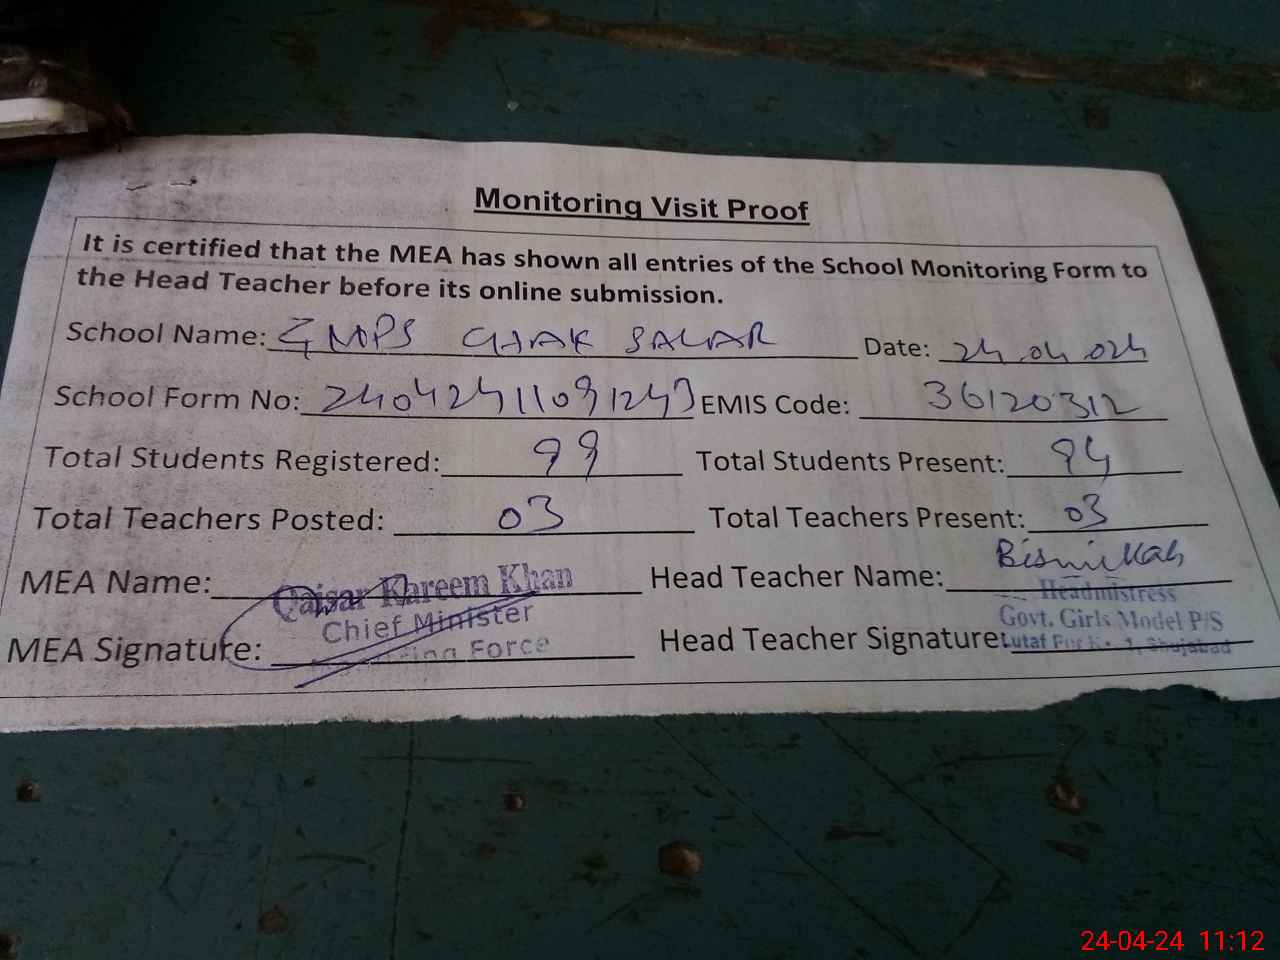 Monitoring Visit Proof
It is certified that the MEA has shown all entries of the School Monitoring Form to
the Head Teacher before its online submission.
School Name: GMPS CHAK SALAR Date: 24.04.024
School Form No: 24042411091249 EMIS Code: 36120312
Total Students Registered: 99 Total Students Present: 94
Total Teachers Posted: 03 Total Teachers Present: 03
MEA Name: Qaisar Kareem Khan Head Teacher Name: Bismillah
Chief Minister Headmistress
Force Govt. Girls Model P/S
MEA Signature: Head Teacher Signature: Lutaf Pur No. 1, Shujabad
24-04-24 11:12